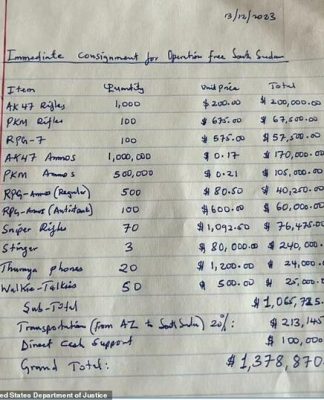 13/12/2023
Immediate Consignment for Operation Free South Sudan
Item Quantity Unit price Total
AK47 Rifles 1,000 $200.00 $200,000.00
PKM Rifles 100 $675.00 $67,500.00
RPG-7 100 $575.00 $57,500.00
AK47 Ammos 1,000,000 $0.17 $170,000.00
PKM Ammos 500,000 $0.21 $105,000.00
RPG-Ammos (Regular) 500 $80.50 $40,250.00
RPG-Ammos (Antitank) 100 $600.00 $60,000.00
Sniper Rifles 70 $1,092.50 $76,475.00
Stinger 3 $80,000.00 $240,000.
Thuraya phones 20 $1,200.00 $24,000.
Walkie-Talkies 50 $500.00 $25,000.
Sub-Total $1,065,725.
Transportation (From AZ to South Sudan) 20%: $213,145
Direct Cash Support $100,000
Grand Total: $1,378,870.
ed States Department of Justice